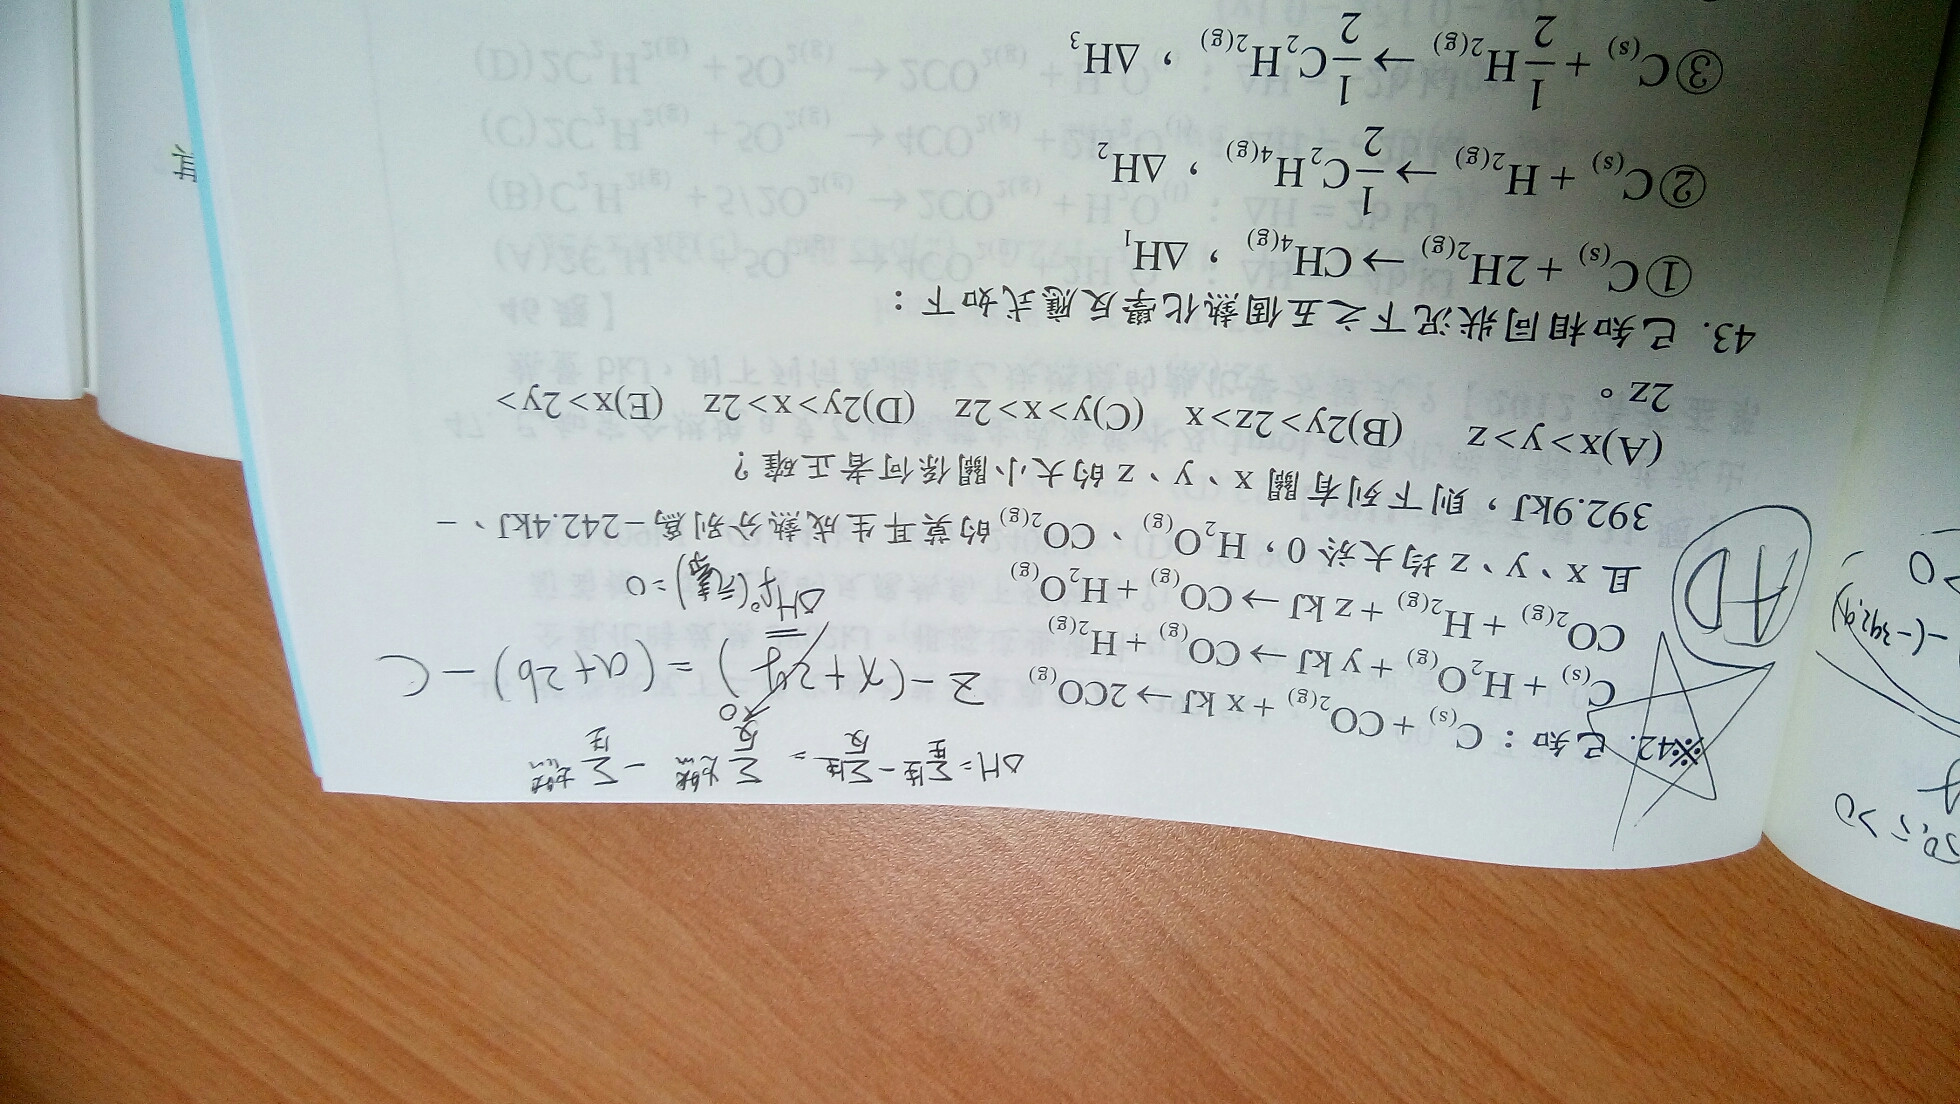 ΔH = Σ生 − Σ生 = Σ燃 − Σ燃
生 反 反 生
※42. 已知：C(s) + CO₂(g) + x kJ → 2CO(g)
<0
z − (x+2y) = (a+2b) − c
C(s) + H₂O(g) + y kJ → CO(g) + H₂(g)
CO₂(g) + H₂(g) + z kJ → CO(g) + H₂O(g)
ΔHf°(元素) = 0
AD
且 x、y、z 均大於 0，H₂O(g)、CO₂(g) 的莫耳生成熱分別為 −242.4kJ、−
392.9kJ，則下列有關 x、y、z 的大小關係何者正確？
(A)x>y>z (B)2y>2z>x (C)y>x>2z (D)2y>x>2z (E)x>2y>
2z。
43. 已知相同狀況下之五個熱化學反應式如下：
①C(s) + 2H₂(g) → CH₄(g)，ΔH₁
②C(s) + H₂(g) → 1/2 C₂H₄(g)，ΔH₂
③C(s) + 1/2 H₂(g) → 1/2 C₂H₂(g)，ΔH₃
−(−392.9)
其